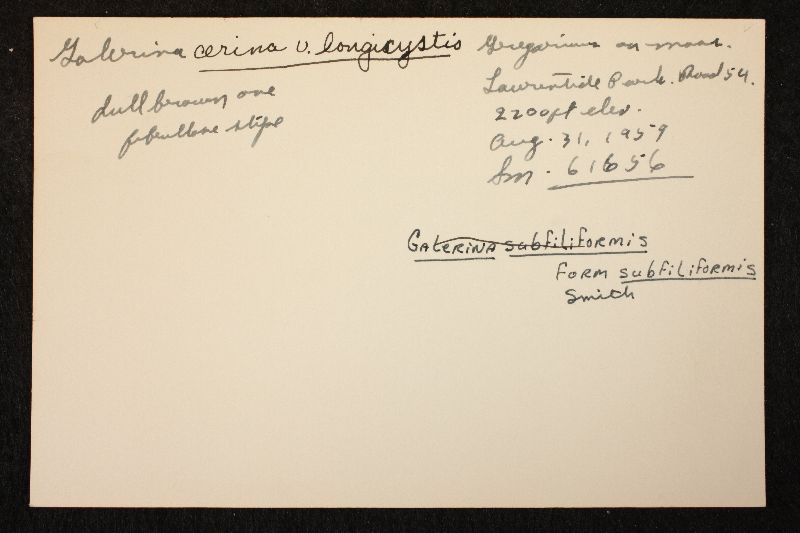 Galerina cerina v. longicystis
dull brown one
stipe
Gregarious on moss.
Laurentide Park. Road 54.
2200ft elev.
Aug. 31, 1959
Sm. 61656
Galerina subfiliformis
Form subfiliformis
Smith